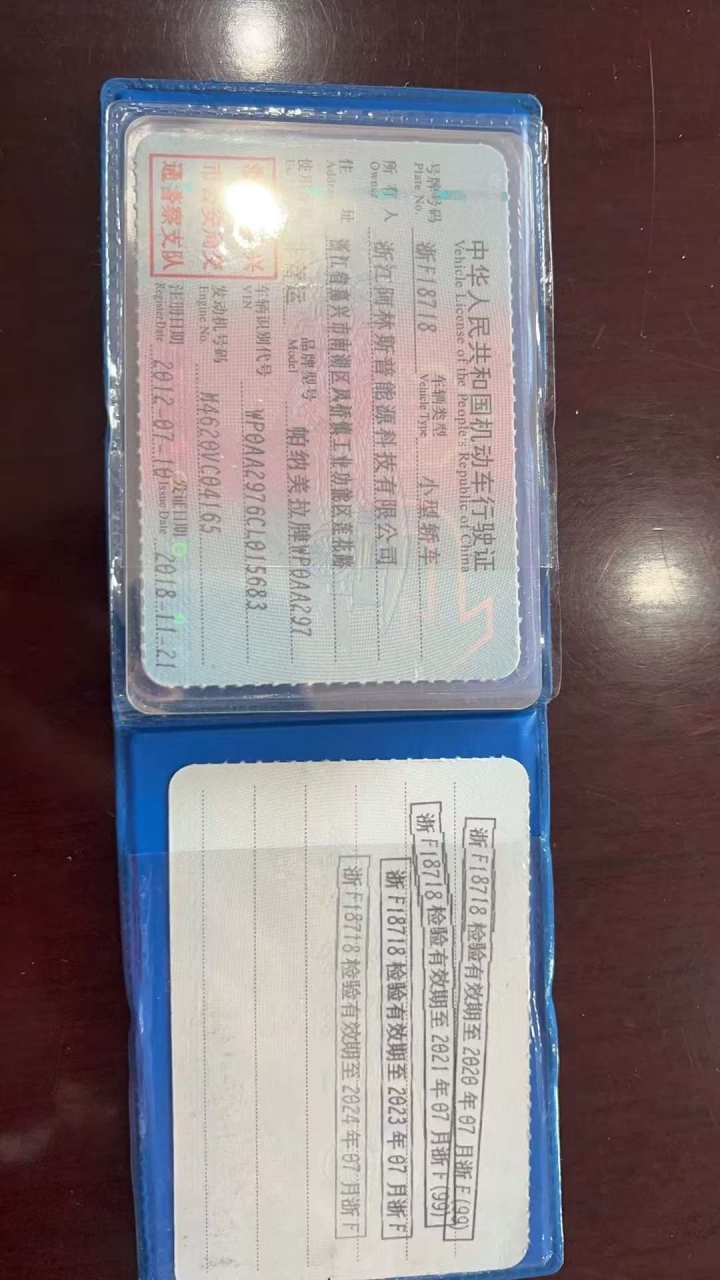 中华人民共和国机动车行驶证
Vehicle License of the People's Republic of China
号牌号码 浙F18718 车辆类型 小型轿车
Plate No. Vehicle Type
所有人 浙江阿林斯普能源科技有限公司
Owner
住址 浙江省嘉兴市南湖区凤桥镇工业功能区莲花路
Address
使用 营运 品牌型号 帕纳美拉牌WP0AA297
Model
车辆识别代号 WP0AA2976CL015683
VIN
发动机号码 M4620VC04165
Engine No.
注册日期 2012-07-10 发证日期 2018-11-21
Register Date Issue Date
兴
市公安局交
通警察支队
浙F18718 检验有效期至 2020 年 07 月浙F(99)
浙F18718 检验有效期至 2021 年 07 月浙F(99)
浙F18718 检验有效期至 2023 年 07 月浙F
浙F18718 检验有效期至 2024 年 07 月浙F